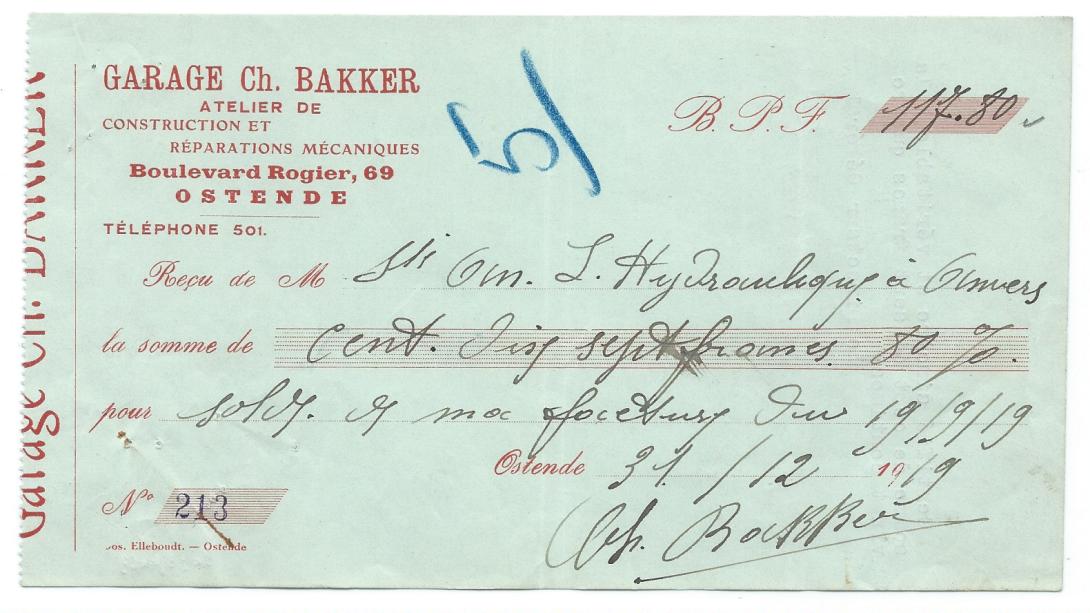 GARAGE Ch. BAKKER
ATELIER DE
CONSTRUCTION ET
RÉPARATIONS MÉCANIQUES
Boulevard Rogier, 69
OSTENDE
TÉLÉPHONE 501.
Garage Ch. BAKKER
B. P. F. 117.80
Reçu de M Sté An. L. Hydraulique à Anvers
la somme de cent. dix sept francs 80 %.
pour solde de ma facture du 19/9/19
Ostende 31/12 1919
Nº 213
Ch. Bakker
Jos. Elleboudt. — Ostende